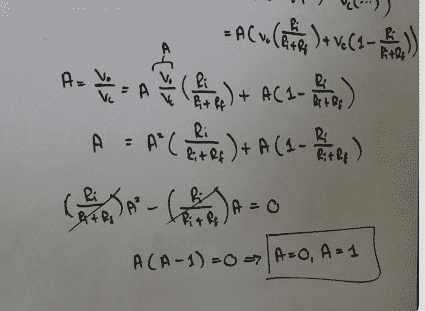 = A(V₀(Ri/(Ri+Rf)) + Vc(1 - Ri/(Ri+Rf)))
A
A = V₀/Vc = A V₀/Vc (Ri/(Ri+Rf)) + A(1 - Ri/(Ri+Rf))
A = A²(Ri/(Ri+Rf)) + A(1 - Ri/(Ri+Rf))
(Ri/(Ri+Rf))A² - (Ri/(Ri+Rf))A = 0
A(A-1)=0 ⇒ A=0, A=1